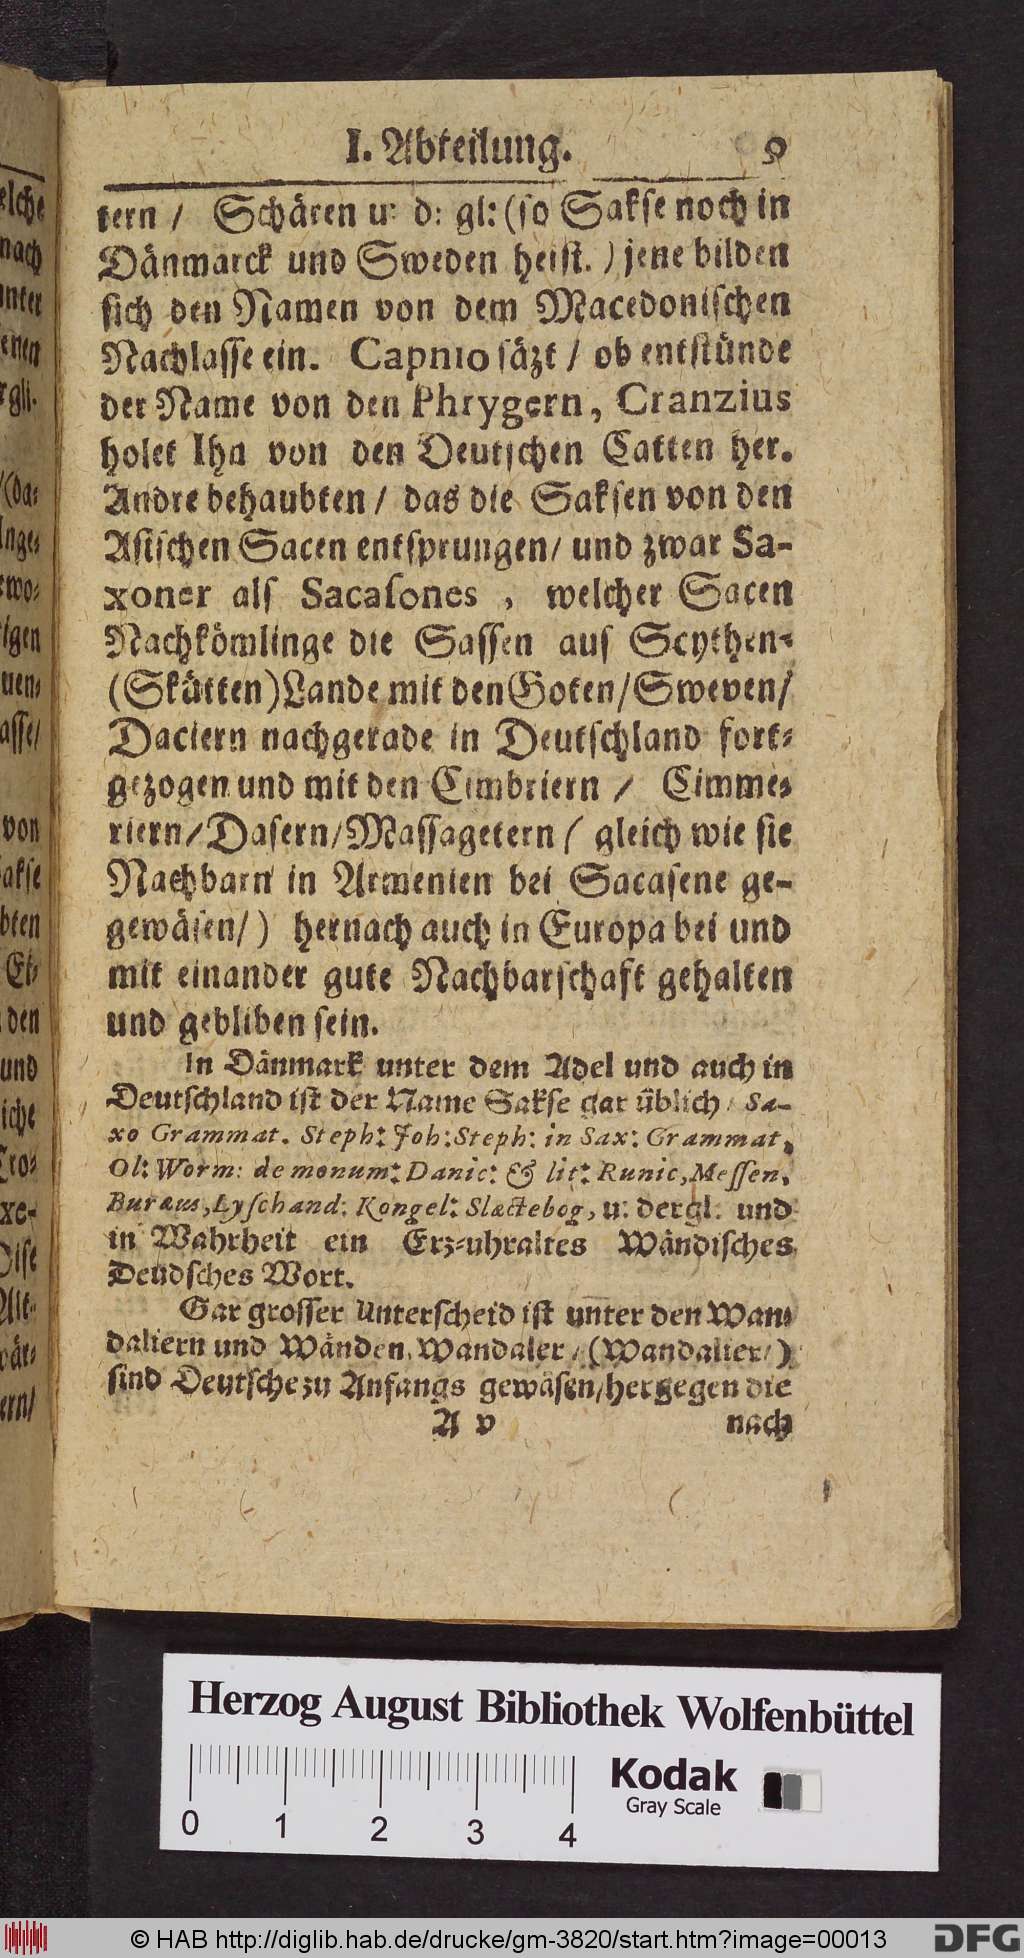 I. Abteilung. 9
tern / Schären u: d: gl: (so Sakse noch in
Dänmarck und Sweden heist.) jene bilden
sich den Namen von dem Macedonischen
Nachlasse ein. Capnio säzt / ob entstünde
der Name von den Phrygern, Cranzius
holet Ihn von den Deutschen Catten her.
Andre behaubten / das die Saksen von den
Asischen Sacen entsprungen / und zwar Sa-
xoner als Sacasones , welcher Sacen
Nachkömlinge die Sassen aus Scythen-
(Skütten) Lande mit den Goten / Sweven /
Daciern nachgerade in Deutschland fort-
gezogen und mit den Cimbriern / Cimme-
riern / Dasern / Massagetern ( gleich wie sie
Nachbarn in Armenien bei Sacasene ge-
gewäsen / ) hernach auch in Europa bei und
mit einander gute Nachbarschaft gehalten
und gebliben sein.
In Dänmark unter dem Adel und auch in
Deutschland ist der Name Sakse gar üblich / Sa-
xo Grammat. Steph: Joh: Steph: in Sax: Grammat,
Ol: Worm: de monum: Danic: & lit: Runic, Messen,
Buræus, Lyschand: Kongel: Slactebog, u: dergl: und
in Wahrheit ein Erz-uhraltes Wändisches
Deudsches Wort.
Gar grosser Unterscheid ist unter den Wan-
daliern und Wänden, Wandaler / (Wandalier /)
sind Deutsche zu Anfangs gewäsen / hergegen die
A v nach
elche
nach
unter
enen
rgli-
/(da-
Inge-
ewo-
igen
uen-
asse/
von
akse
bten
Ei-
den
und
iche
Cro-
xe-
Dise
Alt-
wär-
ern/
Herzog August Bibliothek Wolfenbüttel
Kodak
Gray Scale
0 1 2 3 4
© HAB http://diglib.hab.de/drucke/gm-3820/start.htm?image=00013
DFG